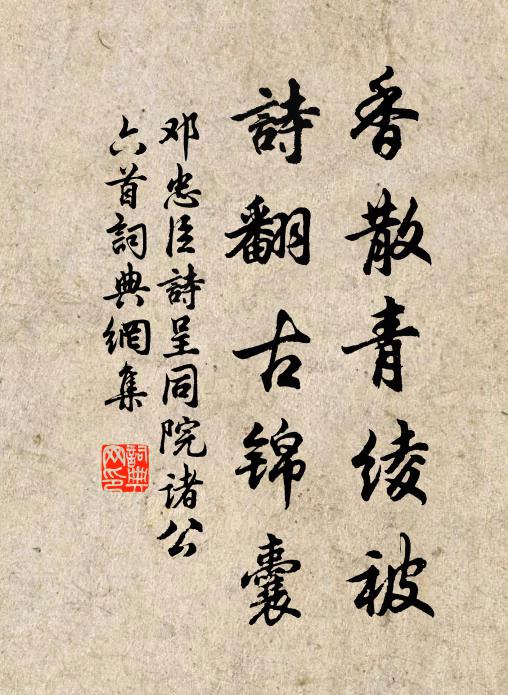 香散青綾被
詩翻古锦囊
邓忠臣詩呈同院诸公
六首詞典網集
詞典
网印